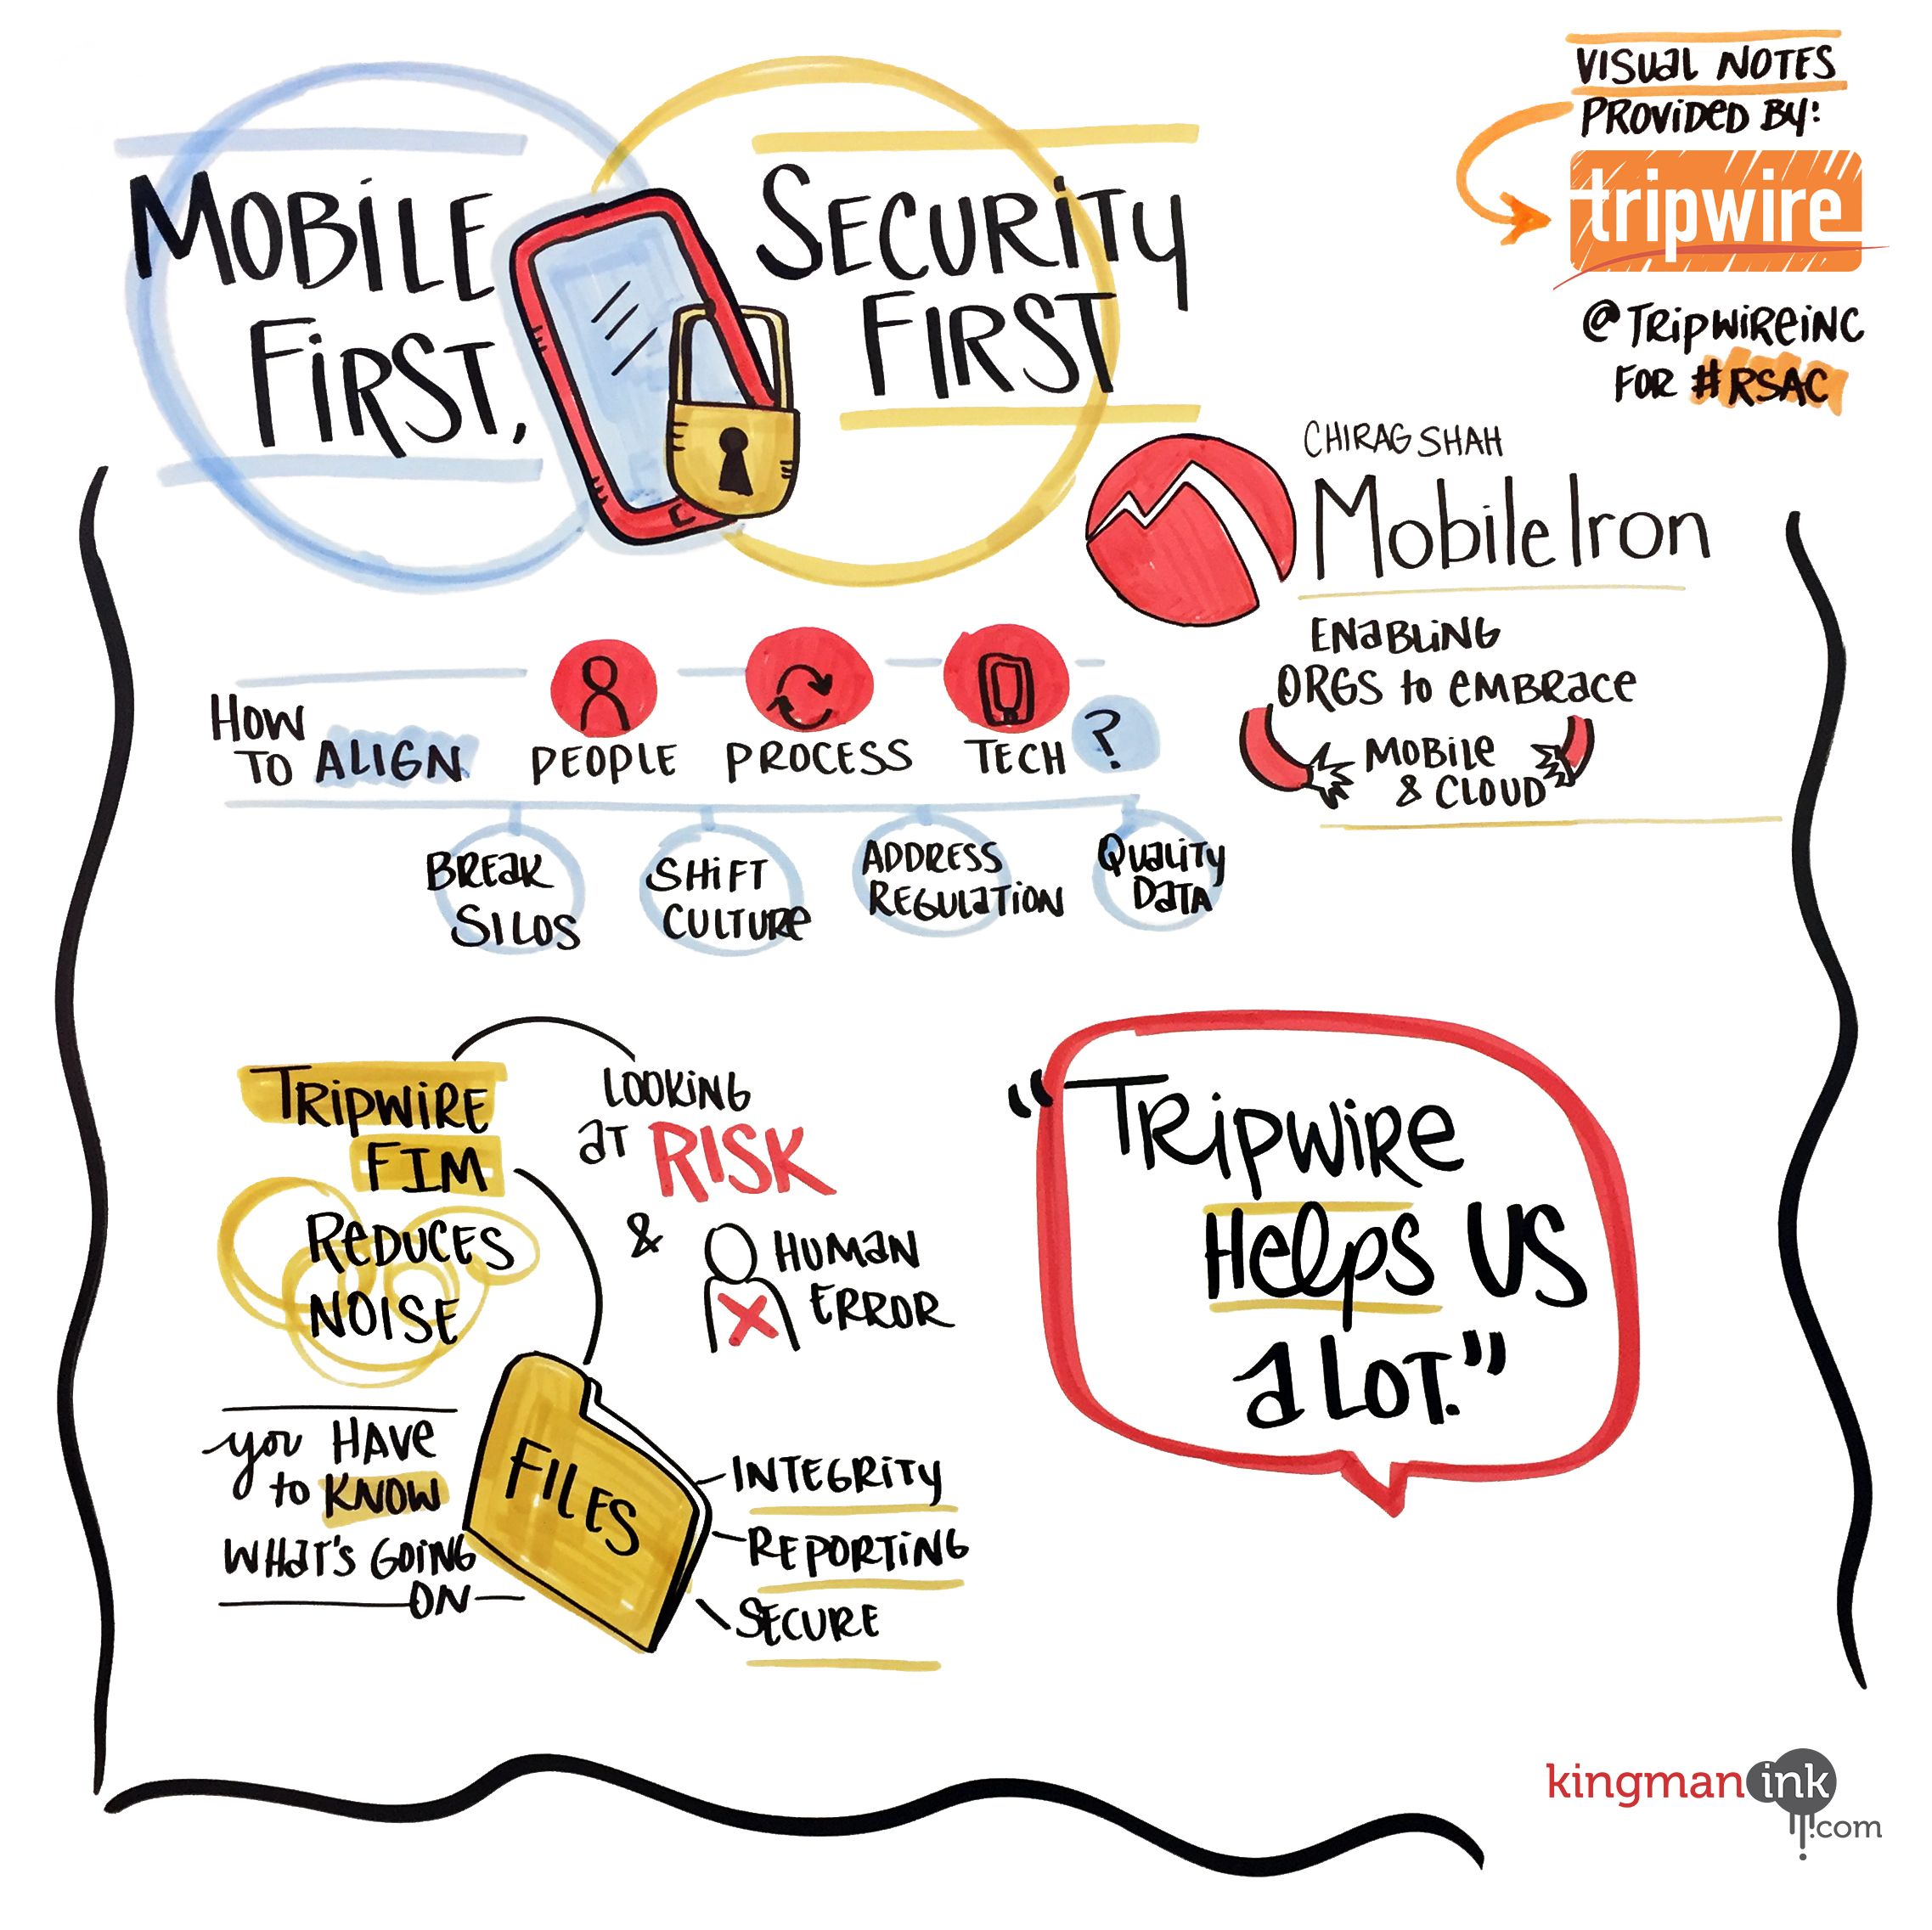 MOBILE
FIRST,
SECURITY
FIRST
VISUAL NOTES
PROVIDED BY:
tripwire
@TRIPWIREINC
FOR #RSAC
CHIRAG SHAH
MobileIron
ENABLING
ORGS to EMBRACE
MOBILE
& CLOUD
HOW
TO ALIGN
PEOPLE
PROCESS
TECH ?
BREAK
SILOS
SHIFT
CULTURE
ADDRESS
REGULATION
QUALITY
DATA
TRIPWIRE
FIM
REDUCES
NOISE
LOOKING
at RISK
&
HUMAN
ERROR
you HAVE
to KNOW
WHAT'S GOING
ON
FILES
INTEGRITY
REPORTING
SECURE
"TRIPWIRE
HELPS US
a LOT."
kingman ink
.com